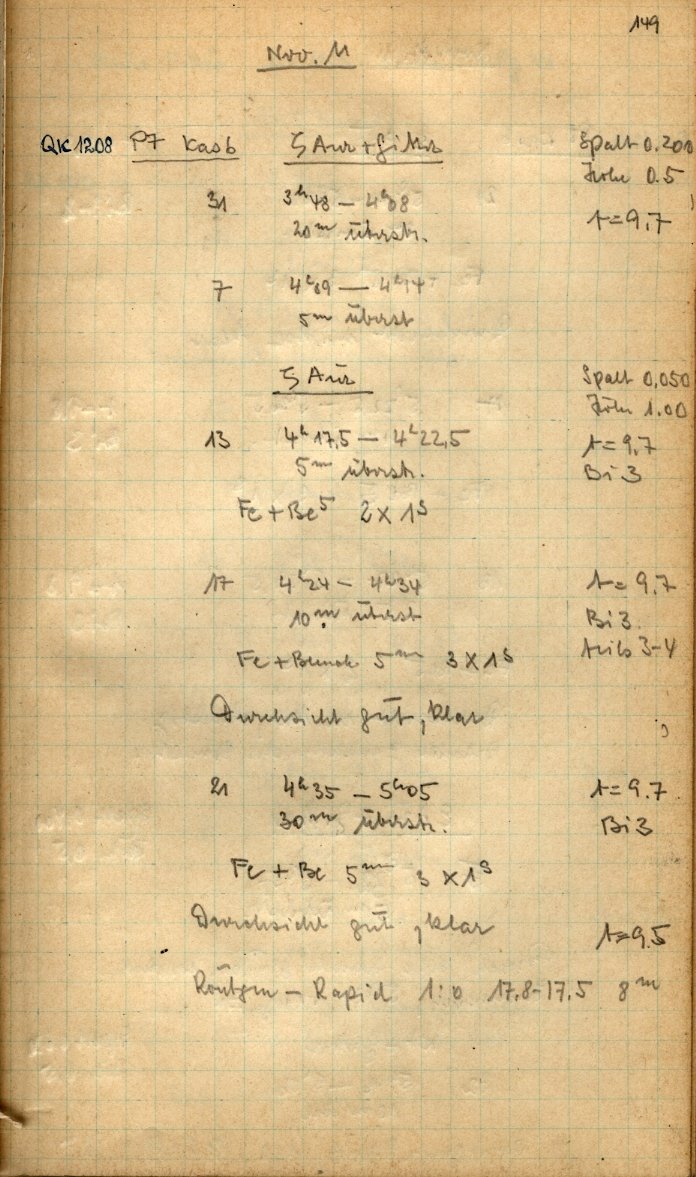 149
Nov. 11
QK 1208 P7 Kas 6 ζ Aur + Gitter Spalt 0.200
Höhe 0.5
31 3ʰ48 — 4ʰ08 t=9,7
20ᵐ überstr.
7 4ʰ09 — 4ʰ14
5ᵐ überst
ζ Aur Spalt 0,050
Höhe 1.00
13 4ʰ17,5 — 4ʰ22,5 t=9,7
5ᵐ überstr. Bi 3
Fe + Be 5 2 × 1ˢ
17 4ʰ24 — 4ʰ34 t= 9,7
10ᵐ überst Bi 3.
Fe + 5ᵐᵐ 3 × 1ˢ 3-4
Durchsicht gut, klar
21 4ʰ35 — 5ʰ05 t= 9.7
30ᵐ überstr. Bi 3
Fe + Be 5ᵐᵐ 3 × 1ˢ
Durchsicht gut, klar t=9,5
Röntgen – Rapid 1:0 17,8-17,5 8ᵐ